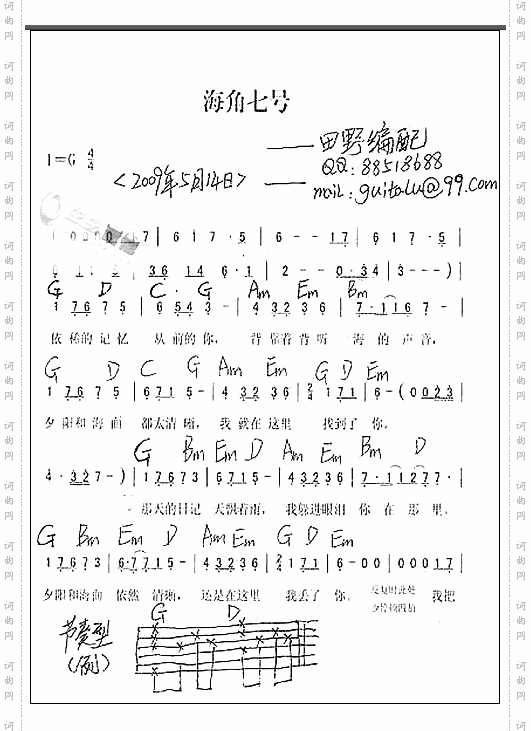 海角七号
1=G 4/4
——田野编配
QQ: 88518688
<2009年5月14日>
——mail: guitalu@99.com
0 0 0 0 7 | 6 1 7 · 5 | 6 - - 1 7 | 6 1 7 · 5 |
6 1 1 5 | 3 6 1 4 6 · 1 | 2 - - 0 · 3 4 | 3 - - - ) |
G D C G Am Em Bm
1 7 6 7 5 | 6 5 4 3 - | 4 3 2 3 6 | 7 · 1 1 6 7 - |
依稀的记忆 从前的你， 背靠着背听 海的声音，
G D C G Am Em G D Em
1 7 6 7 5 | 6 7 1 5 - | 4 3 2 3 6 | 2/4 1 7 1 | 6 - ( 0 0 2 3 |
夕阳和海面 都太清晰， 我就在这里 找到了你。
G Bm Em D Am Em Bm D
4 · 3 2 7 - ) | 1 7 6 7 3 | 6 7 1 5 - | 4 3 2 3 6 | 7 · 1 1 2 7 7 · |
那天的日记 天飘着雨， 我躲进眼泪 你在那里。
G Bm Em D Am Em G D Em
1 7 6 7 3 | 6 · 7 7 1 5 - | 4 3 2 3 6 | 2/4 1 7 1 | 6 - 0 0 | 0 0 0 1 7 |
夕阳和海面 依然清晰， 还是在这里 我丢了你。 反复时此处 我把
G D
节奏型
(例)
词曲网
词曲网
词曲网
词曲网
词曲网
词曲网
词曲网
词曲网
词曲网
词曲网
词曲网
词曲网